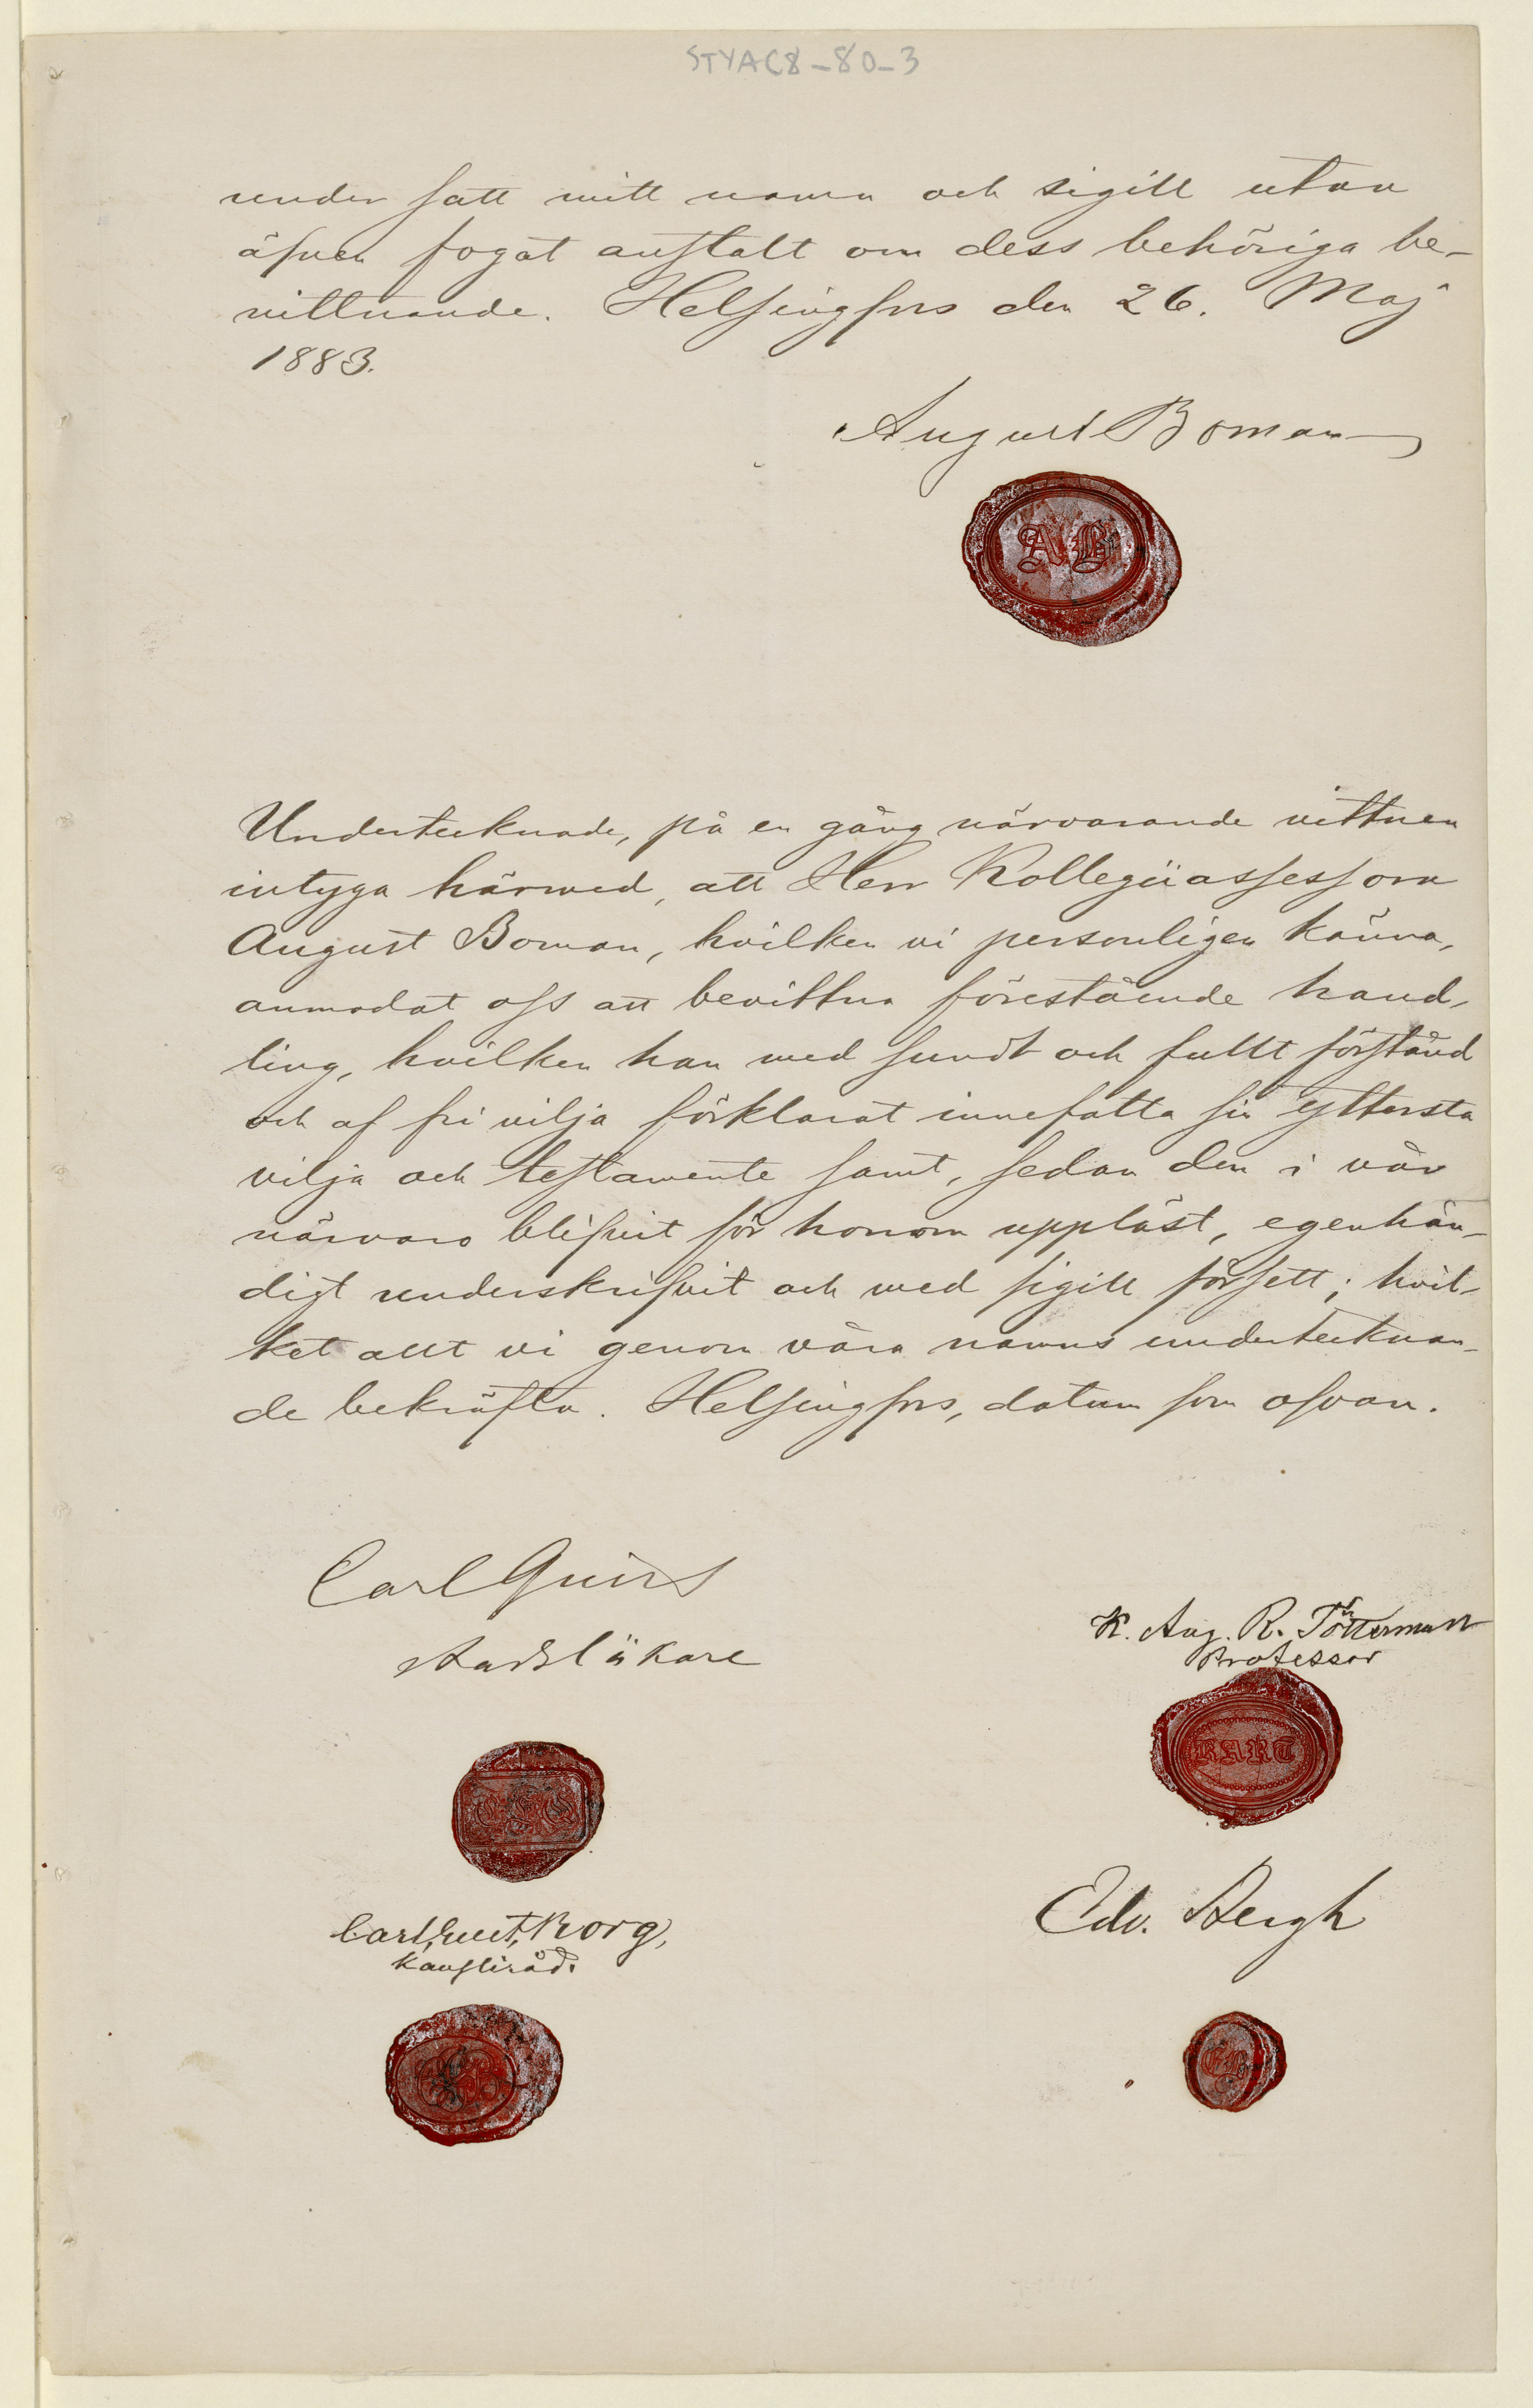 STYAC8_80_3
under satt mitt namn och sigill utan
äfven fogat anstalt om dess behöriga be-
vittnande. Helsingfors den 26. Maj
1883.
August Boman
AB
Undertecknade, på en gång närvarande vittnen
intyga härmed, att Herr Kollegiiassessorn
August Boman, hvilken vi personligen känna,
anmodat oss att bevittna förestående hand-
ling, hvilken han med sundt och fullt förstånd
och af fri vilja förklarat innefatta sin yttersta
vilja och testamente samt, sedan den i vår
närvaro blifvit för honom uppläst, egenhän-
digt underskrifvit och med sigill försett; hvil-
ket allt vi genom våra namns undertecknan-
de bekräfta. Helsingfors, datum som ofvan.
Carl Qvist
stadsläkare
K. Aug. R. Tötterman
Professor
KART
Carl Gust. Borg,
Kansliråd.
Edv. Bergh
EB